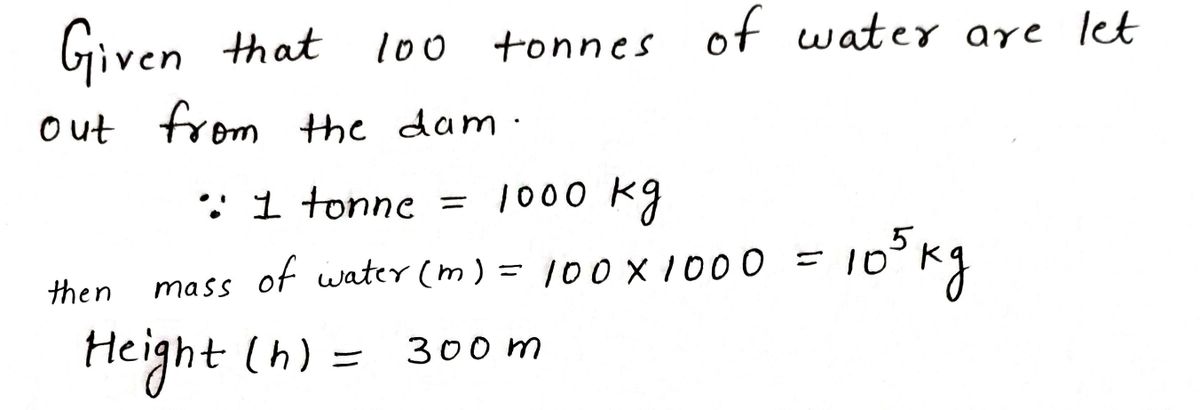 Given that 100 tonnes of water are let
out from the dam.
∵ 1 tonne = 1000 kg
then mass of water (m) = 100 X 1000 = 10⁵ kg
Height (h) = 300 m